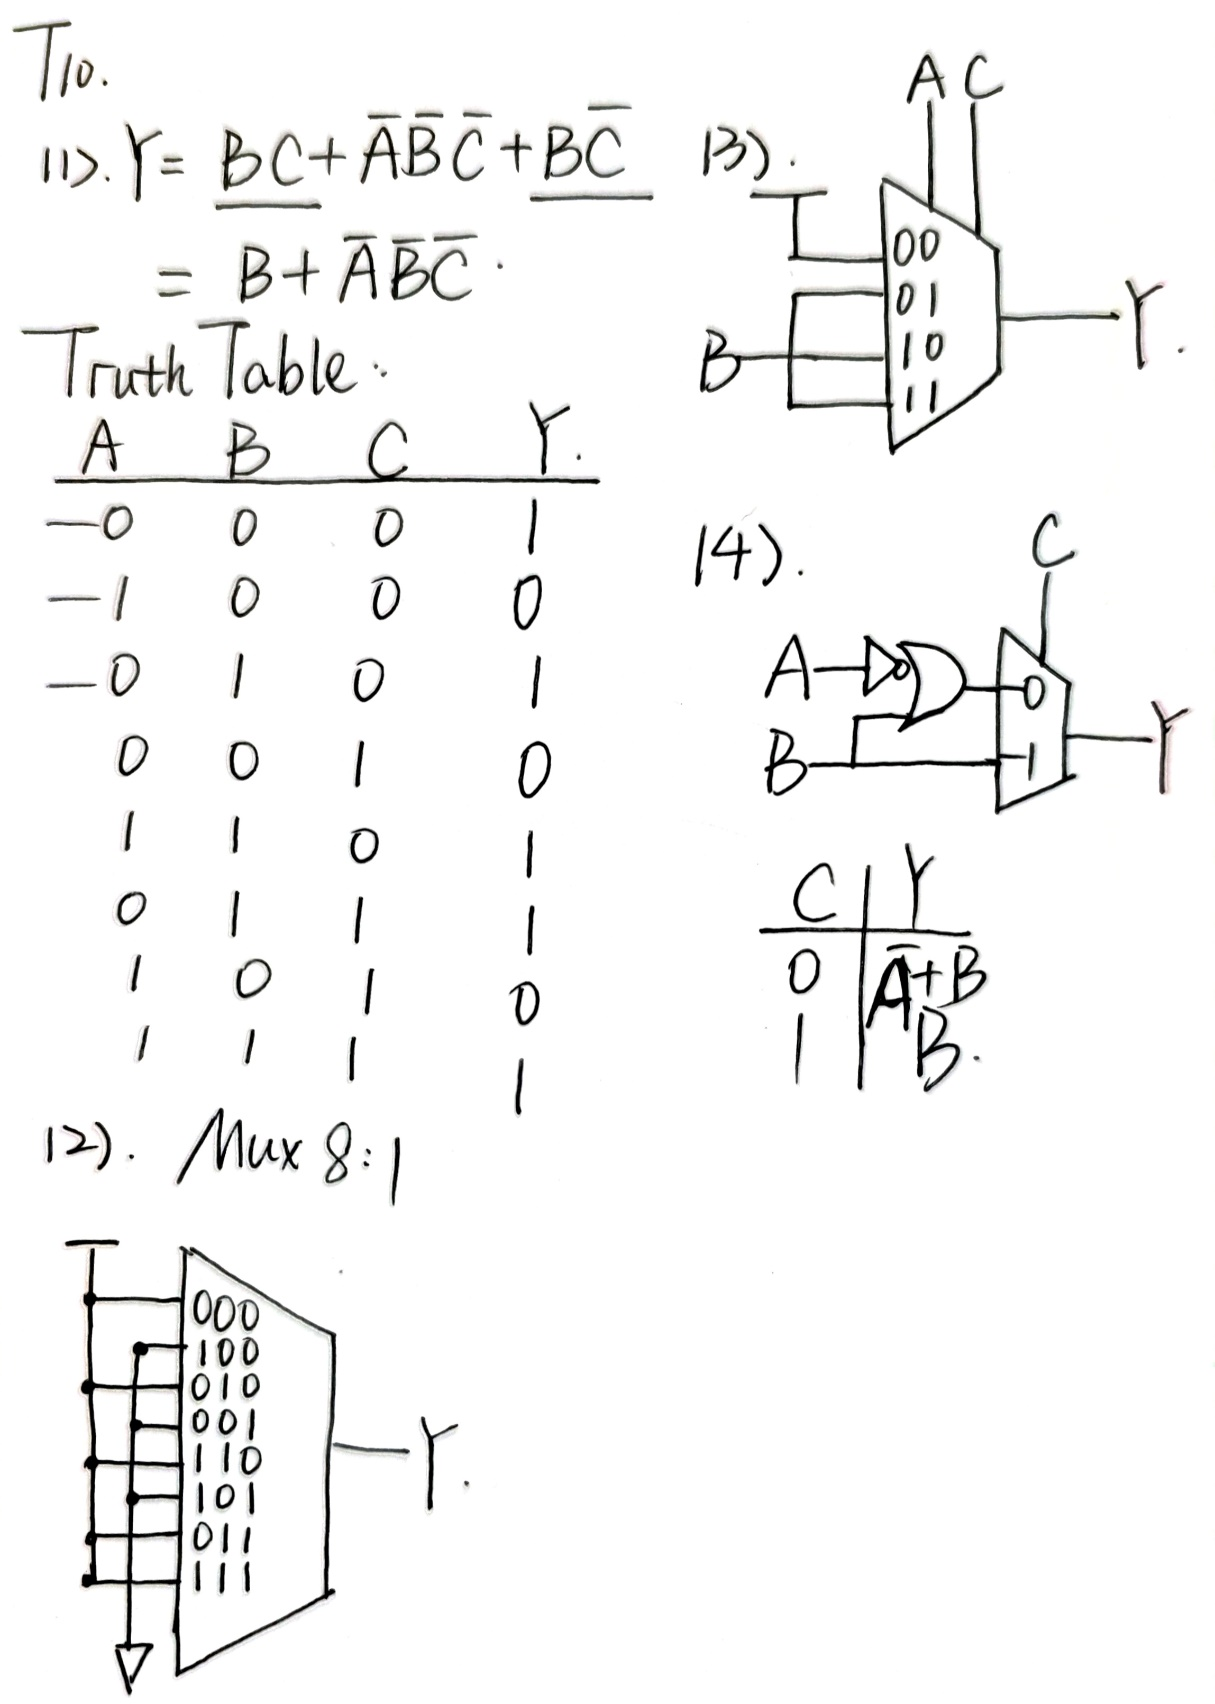 T10.
(1). Y = BC + A̅B̅C̅ + BC̅
= B + A̅B̅C̅.
Truth Table:
A B C Y.
—0 0 0 1
—1 0 0 0
—0 1 0 1
0 0 1 0
1 1 0 1
0 1 1 1
1 0 1 0
1 1 1 1
(2). Mux 8:1
000
100
010
001
110
101
011
111
Y.
(3).
A C
00
01
10
11
B
Y.
(4).
C
A
0
B
1
Y
C Y
0 A̅+B
1 B.